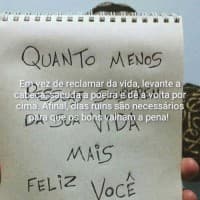 QUANTO MENOS
Em vez de reclamar da vida, levante a
cabeça, sacuda a poeira e dê a volta por
cima. Afinal, dias ruins são necessários
para que os bons valham a pena!
DA SUA VIDA
MAIS
FELIZ VOCÊ